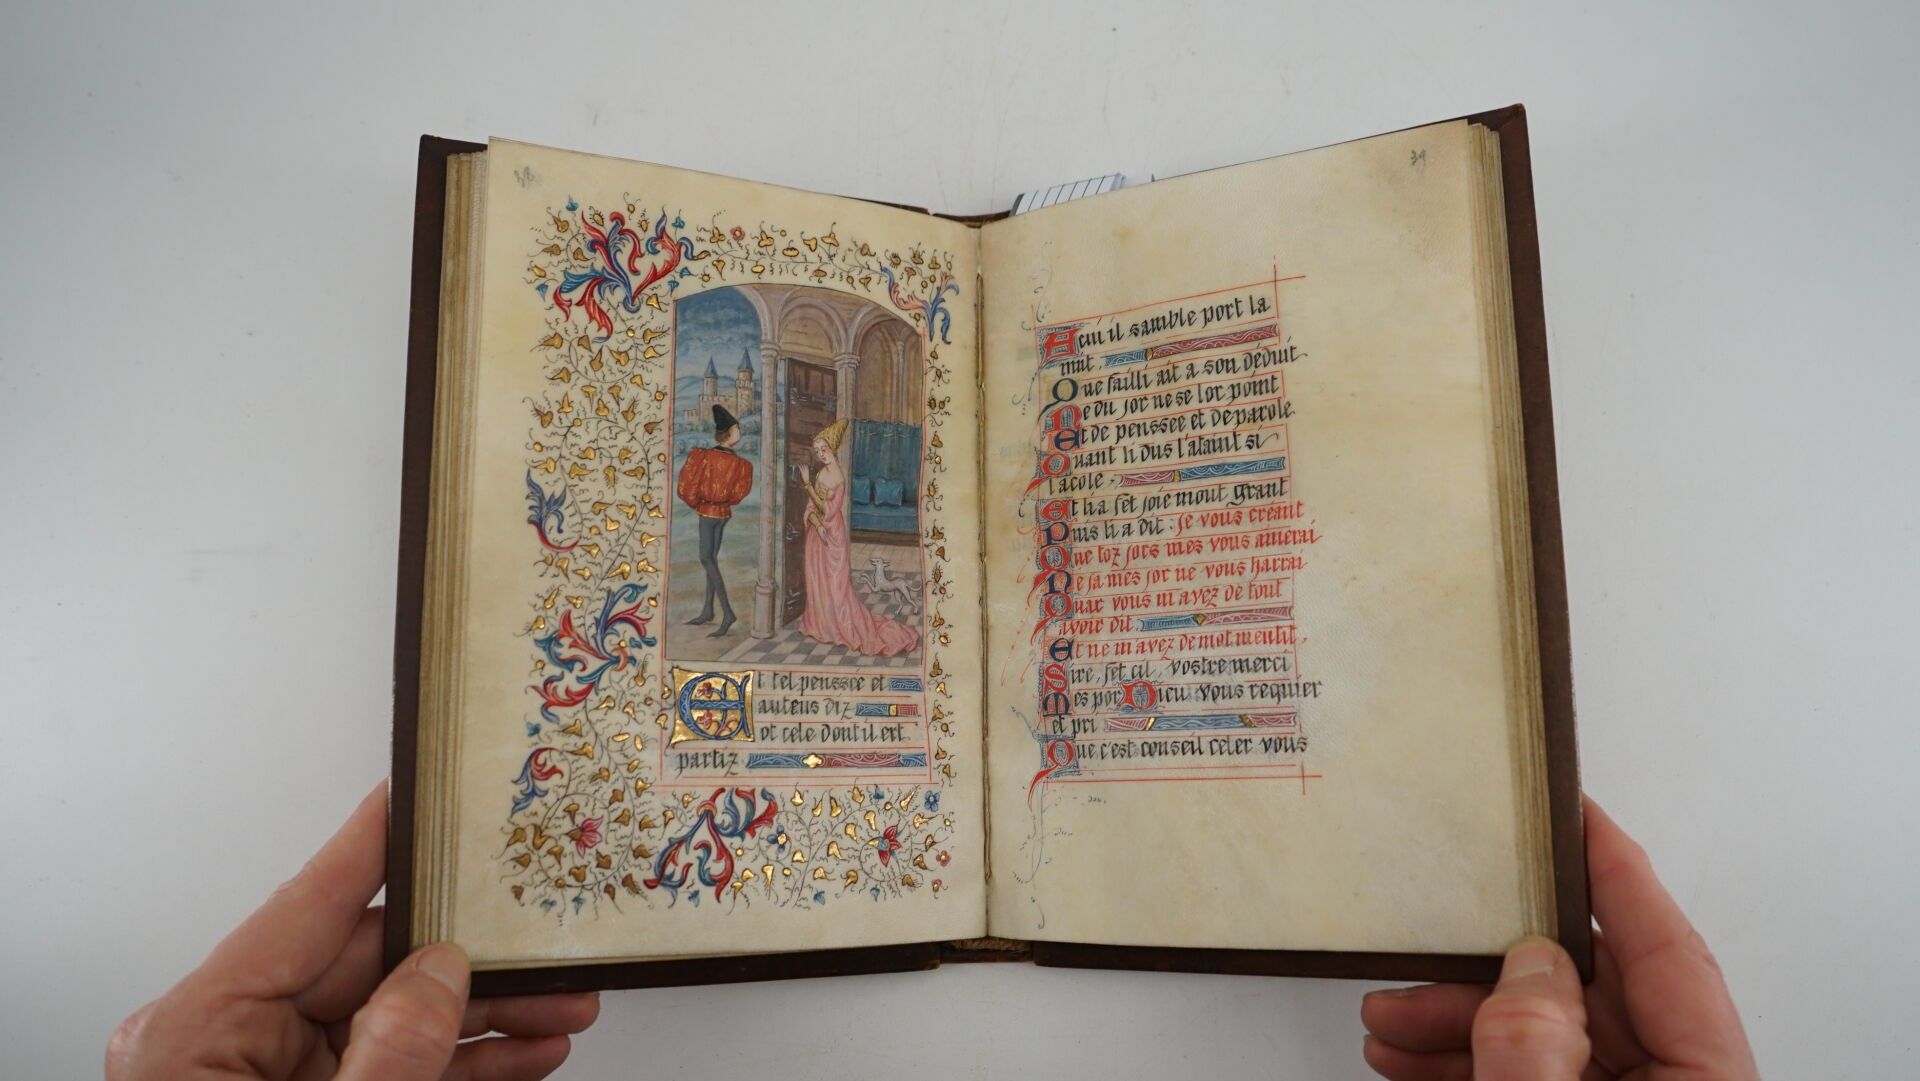 38
Et tel penssee et
auteus diz
ot cele dont il ert
partiz
39
A cui il samble port la
nuit.
Que failli ait a son déduit
Ne du jor ne se lor point
Et de penssee et de parole.
Quant li Dus l'ataint si
l'acole,
Et li a fet joie mout grant
Puis li a dit: je vous créant
Que toz jors mes vous amerai
Ne ja mes jor ne vous harrai
Quar vous m'avez de tout
avoir dit
Et ne m'avez de mot mentit,
Sire, fet cil, vostre merci
Mes por Dieu vous requier
et pri
Que c'est conseil celer vous